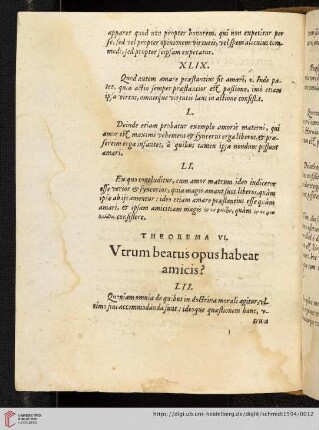 apparet quod non propter honorem, qui non expetitur per
se, sed vel propter opinionem virtutis, vel spem alicuius com-
modi, sed propter seipsam expetatur.
XLIX.
Quod autem amare præstantius sit amari, inde pa-
tet, quia actio semper præstantior est passione, imò etiam
ipsa virtus, omnisque virtutis laus in actione consistit.
L.
Deinde etiam probatur exemplo amoris materni, qui
amor est maximè vehemens & syncerus erga liberos, & præ-
sertim erga infantes, à quibus tamen ipsæ nondum possunt
amari.
LI.
Ex quo concluditur, cum amor matrum ideo iudicetur
esse verior & syncerior, quia magis amant suos liberos, quàm
ipsæ ab ijs amentur: ideo etiam amare præstantius esse quàm
amari, & ipsam amicitiam magis in amare, quàm in
consistere.
THEOREMA VI.
Vtrum beatus opus habeat
amicis?
LII.
Quoniam omnia de quibus in doctrina morali agitur, vl-
timo fini accommodanda sunt: ideoque quæstionem hanc, v-
UNIVERSITÄTS-
BIBLIOTHEK
HEIDELBERG
https://digi.ub.uni-heidelberg.de/diglit/schmidt1594/0012